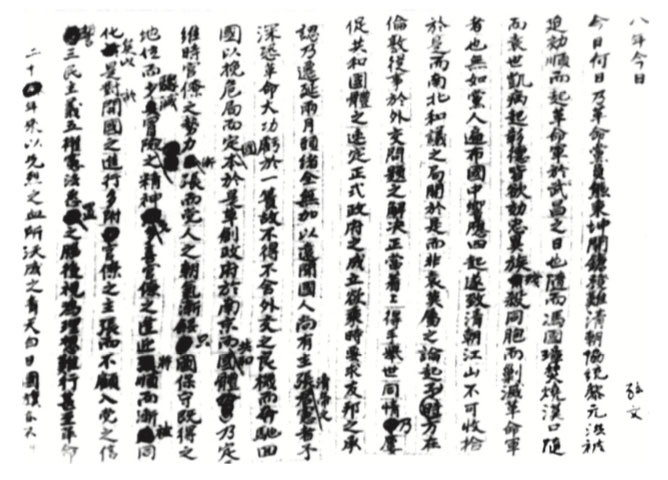 八年今日
孫文
今日何日乃革命黨員熊秉坤開鎗發難清朝協統黎元洪被
迫効順而起革命軍於武昌之日也隨而馮國璋焚燒漢口隨
而袁世凱病起彰德皆欲効忠異族殘殺同胞而剿滅革命軍
者也無如黨人遍布國中響應四起遂致清朝江山不可收拾
於是而南北和議之局開於是而非袁莫屬之論起予方在
倫敦從事於外交問題之解決正當着々得手舉世同情乃
促共和國體之速定正式政府之成立欲乘時要求友邦之承
認乃遷延兩月頭緒全無加以還聞國人尚有主張清帝者予
深恐革命大功虧於一簣故不得不舍外交之良機而奔馳回
國以挽危局而定國本於是草創政府於南京而共和國體乃定
維時官僚之勢力漸張而党人之朝氣漸餒只圖保守既得之
地位而減冒險之精神又多喜官僚之逢迎將順而漸被同
化矣以是對於開國之進行多附官僚之主張而不顧入党之信
誓三民主義五權憲法置之腦後視為理想難行甚至革命
二十年來以先烈之血所沃成之青天白日國旗